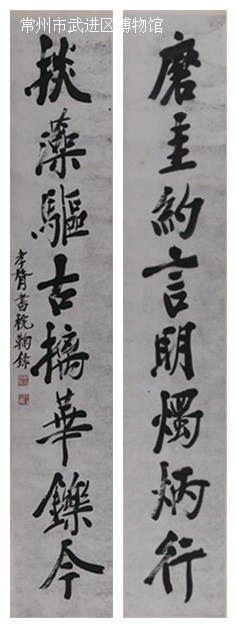 常州市武进区博物馆
磨圭約言明燭炳行
掞藻驅古摛華鑠今
孝胥書